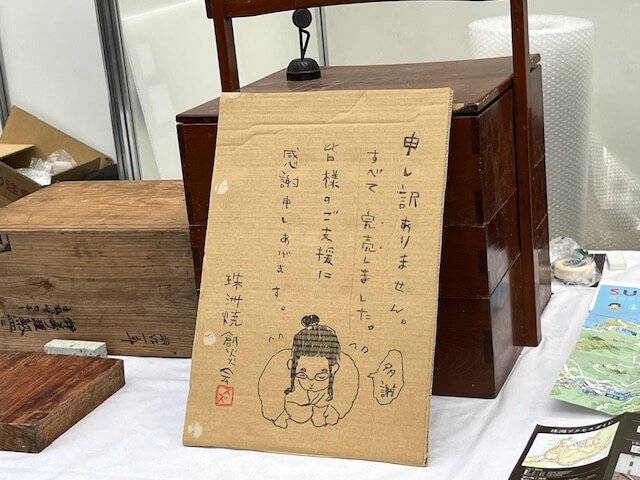 申し訳ありません。
すべて完売しました。
皆様のご支援に
感謝申しあげます。
珠洲焼 創炎
多謝
SU